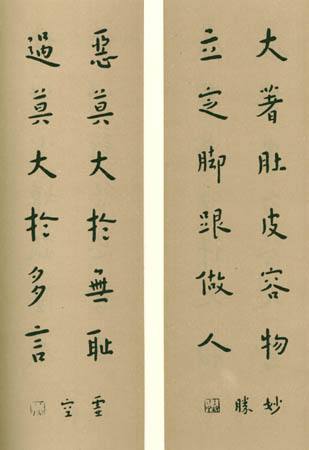 大著肚皮容物
立定脚跟做人
妙
勝
惡莫大於無恥
過莫大於多言
空